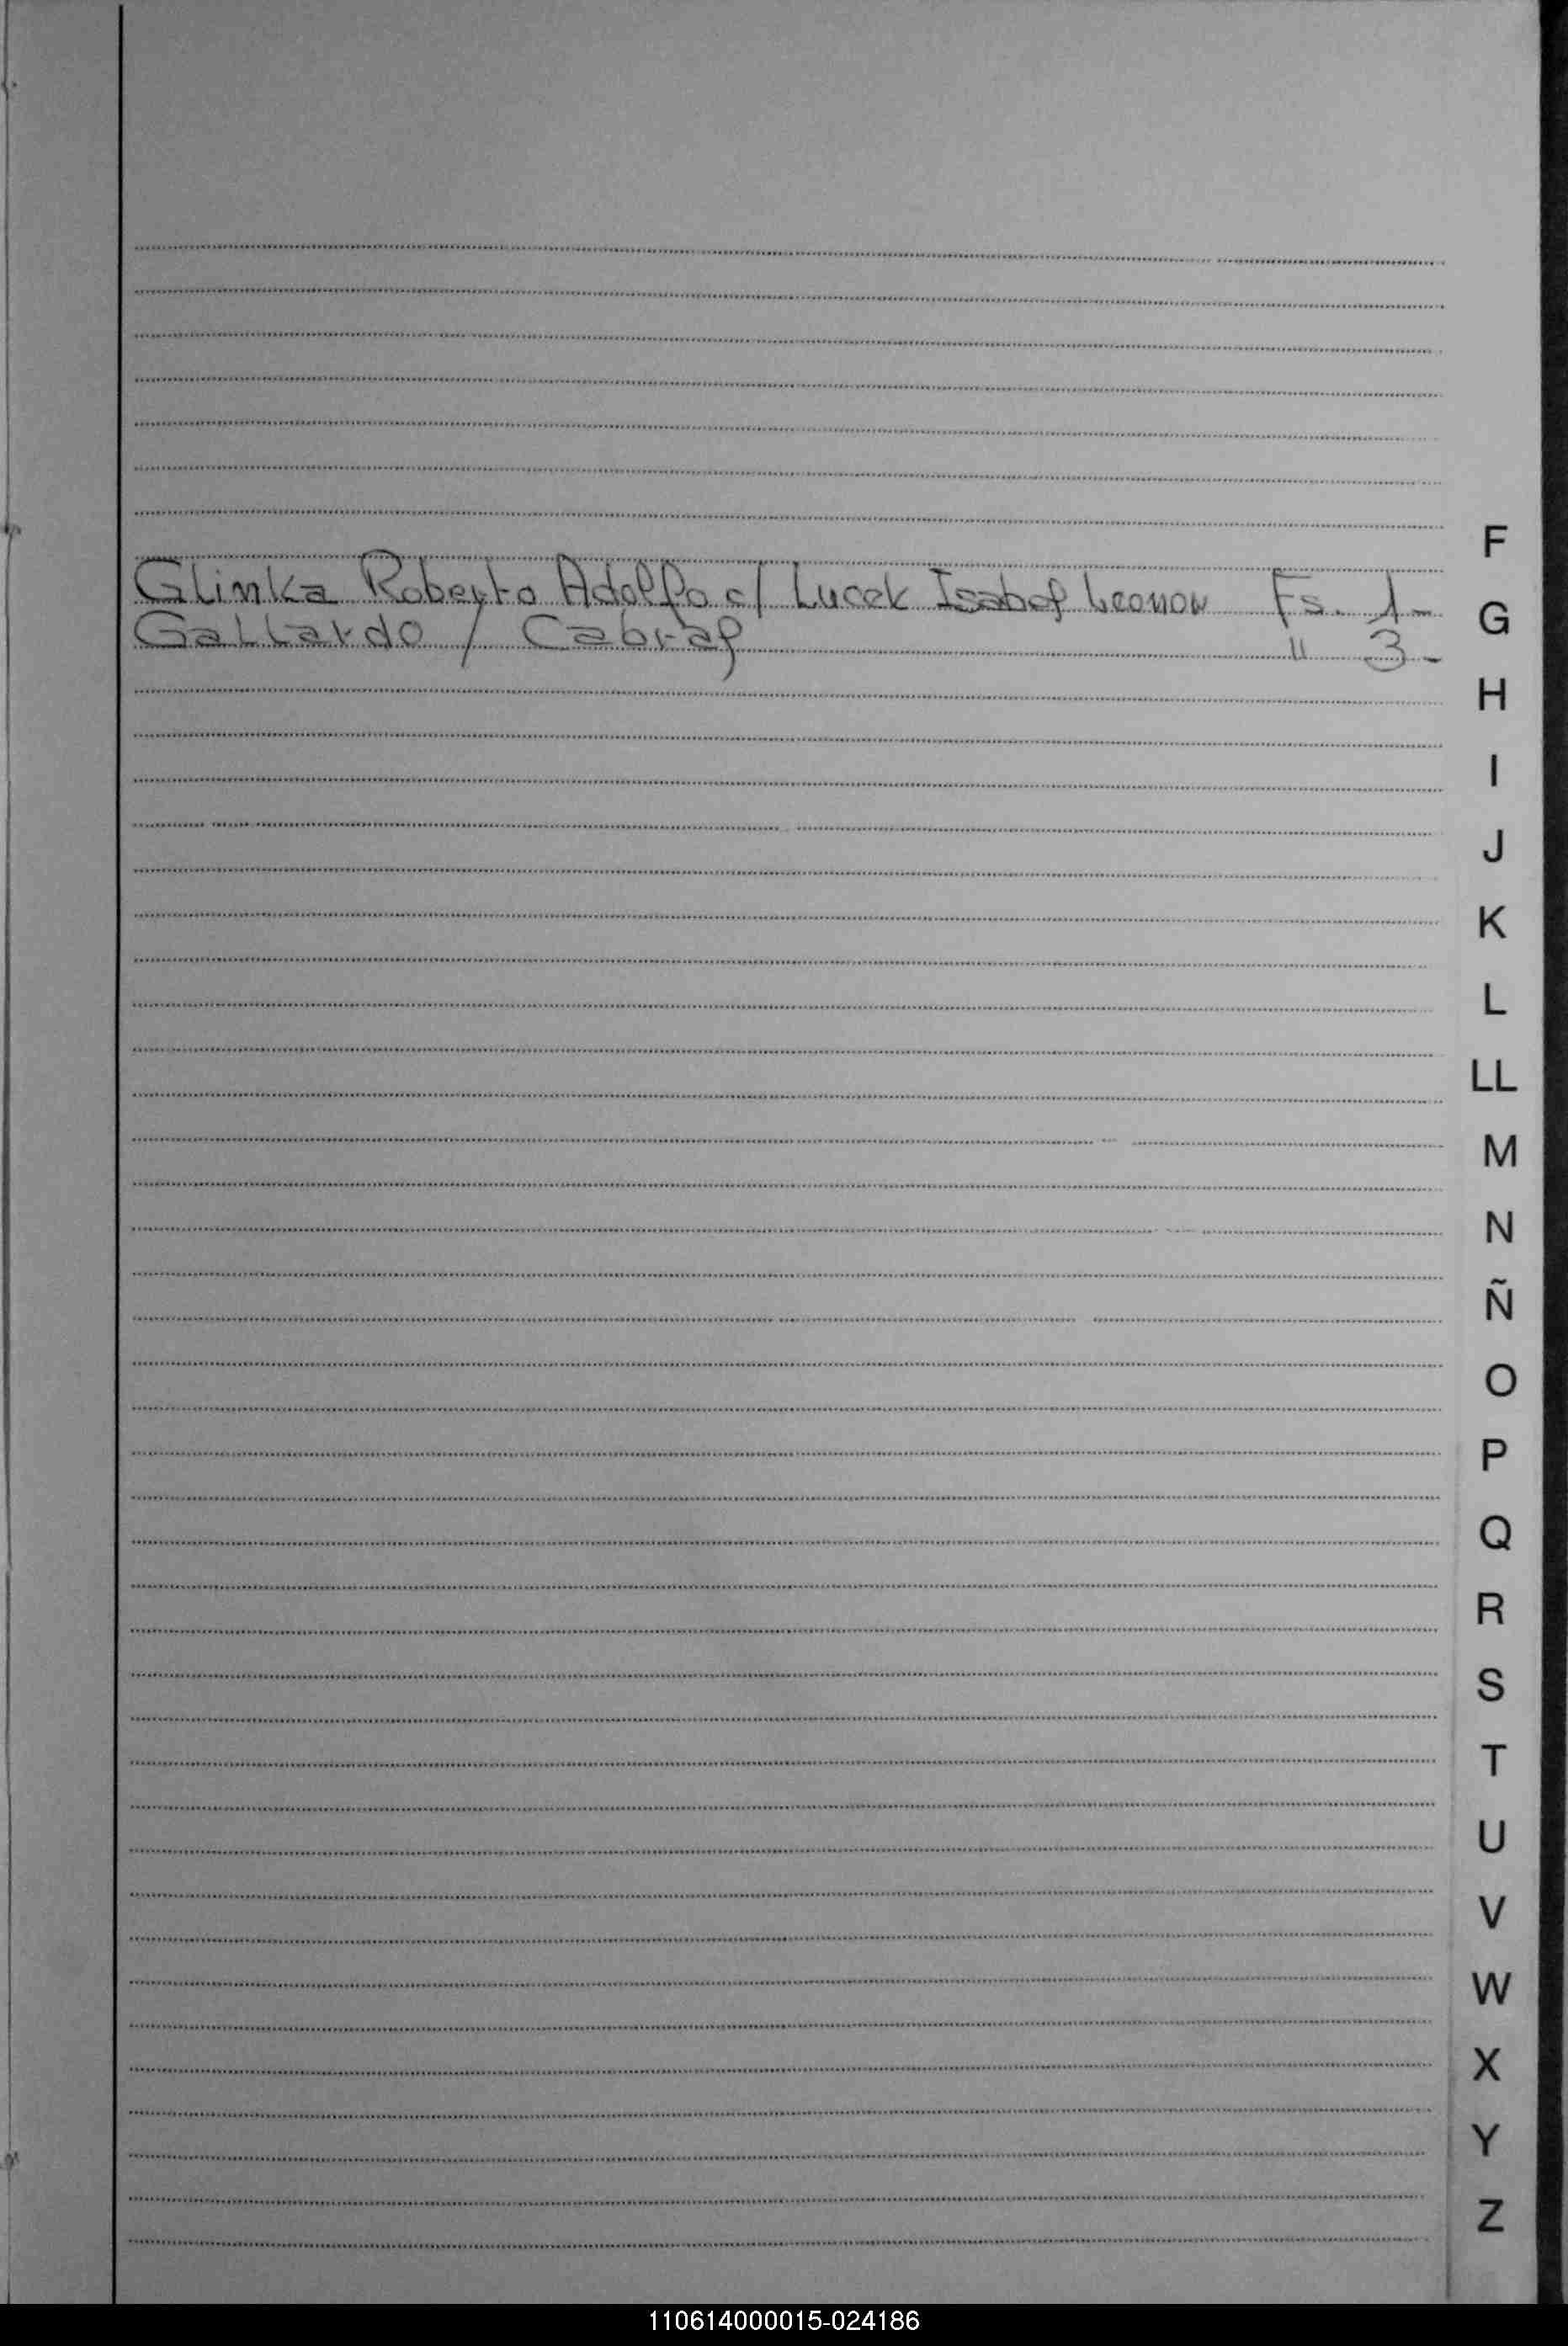 Glinka Roberto Adolfo c/ Lucek Isabel Leonor Fs. 1-
Gallardo / Cabral " 3-
F
G
H
I
J
K
L
LL
M
N
Ñ
O
P
Q
R
S
T
U
V
W
X
Y
Z
110614000015-024186